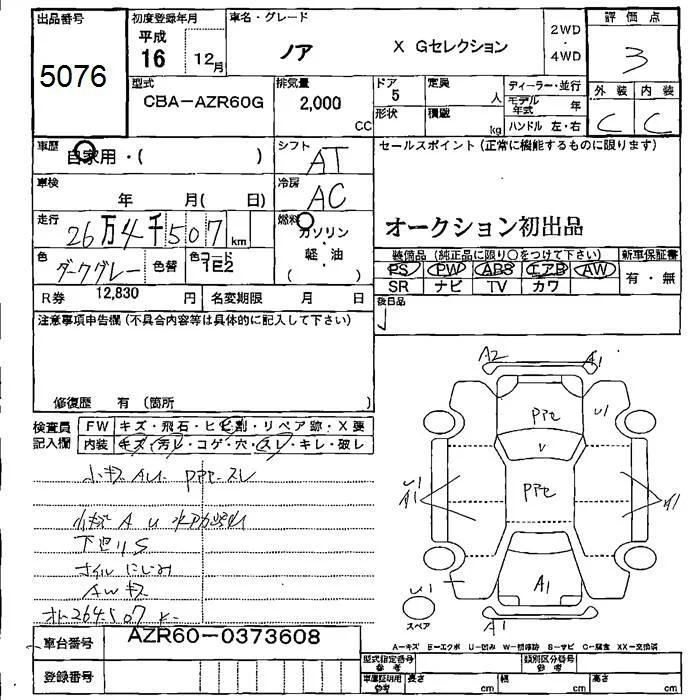 出品番号
5076
初度登録年月
平成
16 12月
車名・グレード
ノア X Gセレクション
2WD
・
4WD
評価点
3
型式
CBA-AZR60G
排気量
2,000
CC
ドア
5
定員
人
形状
積載
kg
ディーラー・並行
モデル年式 年
ハンドル 左・右
外装 内装
C C
車歴
自家用・( )
シフト
AT
車検
年 月( 日)
冷房
AC
走行
26万4千507km
燃料
ガソリン
・
軽・油
( )
色
ダークグレー
色替
色コード
1E2
R券 12,830 円
名変期限 月 日
セールスポイント(正常に機能するものに限ります)
オークション初出品
装備品(純正品に限り○をつけて下さい)
PS PW ABS エアB AW
SR ナビ TV カワ
新車保証書
有・無
後日品
注意事項申告欄(不具合内容等は具体的に記入して下さい)
修復歴 有(箇所
検査員
記入欄
FW キズ・飛石・ヒビ割・リペア跡・X要
内装 キズ・汚レ・コゲ・穴・スレ・キレ・破レ
小キズ AU PPセ スレ
小キズ A U
下廻りS
オイルにじみ
AWキズ
264507
A2 A1
PPセ
U1
V
U1
A1
PPセ
A1
U1
スペア
A1
車台番号
AZR60-0373608
登録番号
A-キズ E-エクボ U-凹み W-補修跡 S-サビ C-腐食 XX-交換済
型式指定番号
参考
類別区分番号
参考
車庫証明用
参考
長さ cm
幅 cm
高さ cm